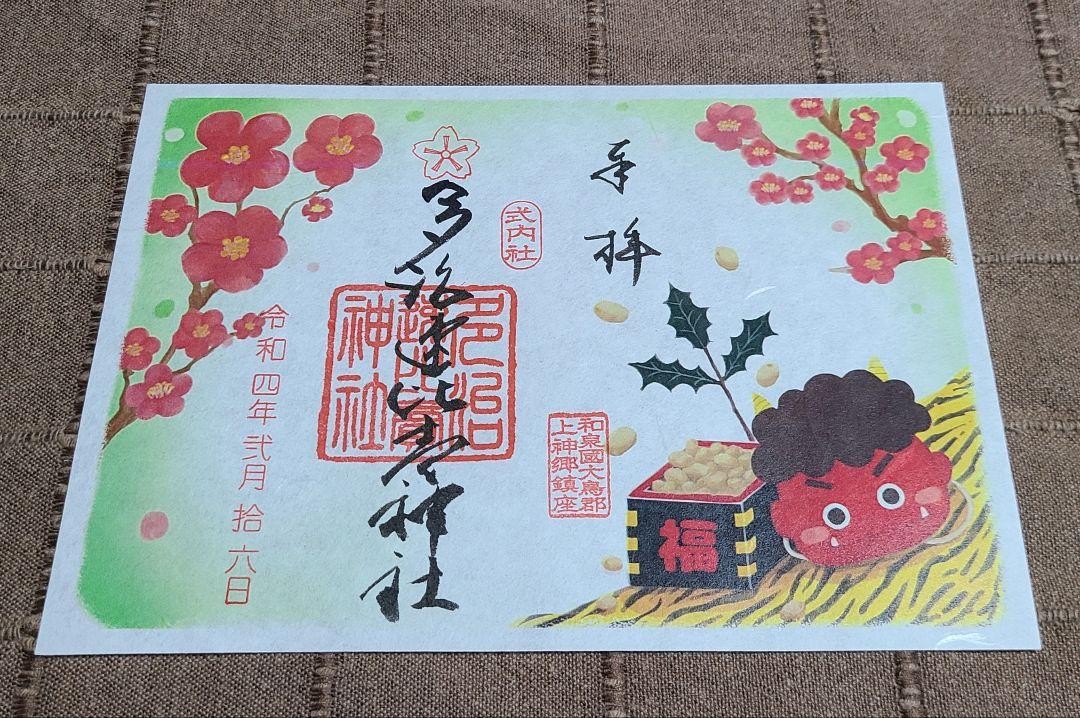 奉拝
和泉國大鳥郡
上神郷鎮座
福
式内社
多治速比売神社
多治
速比賣
神社
令和四年弐月拾六日